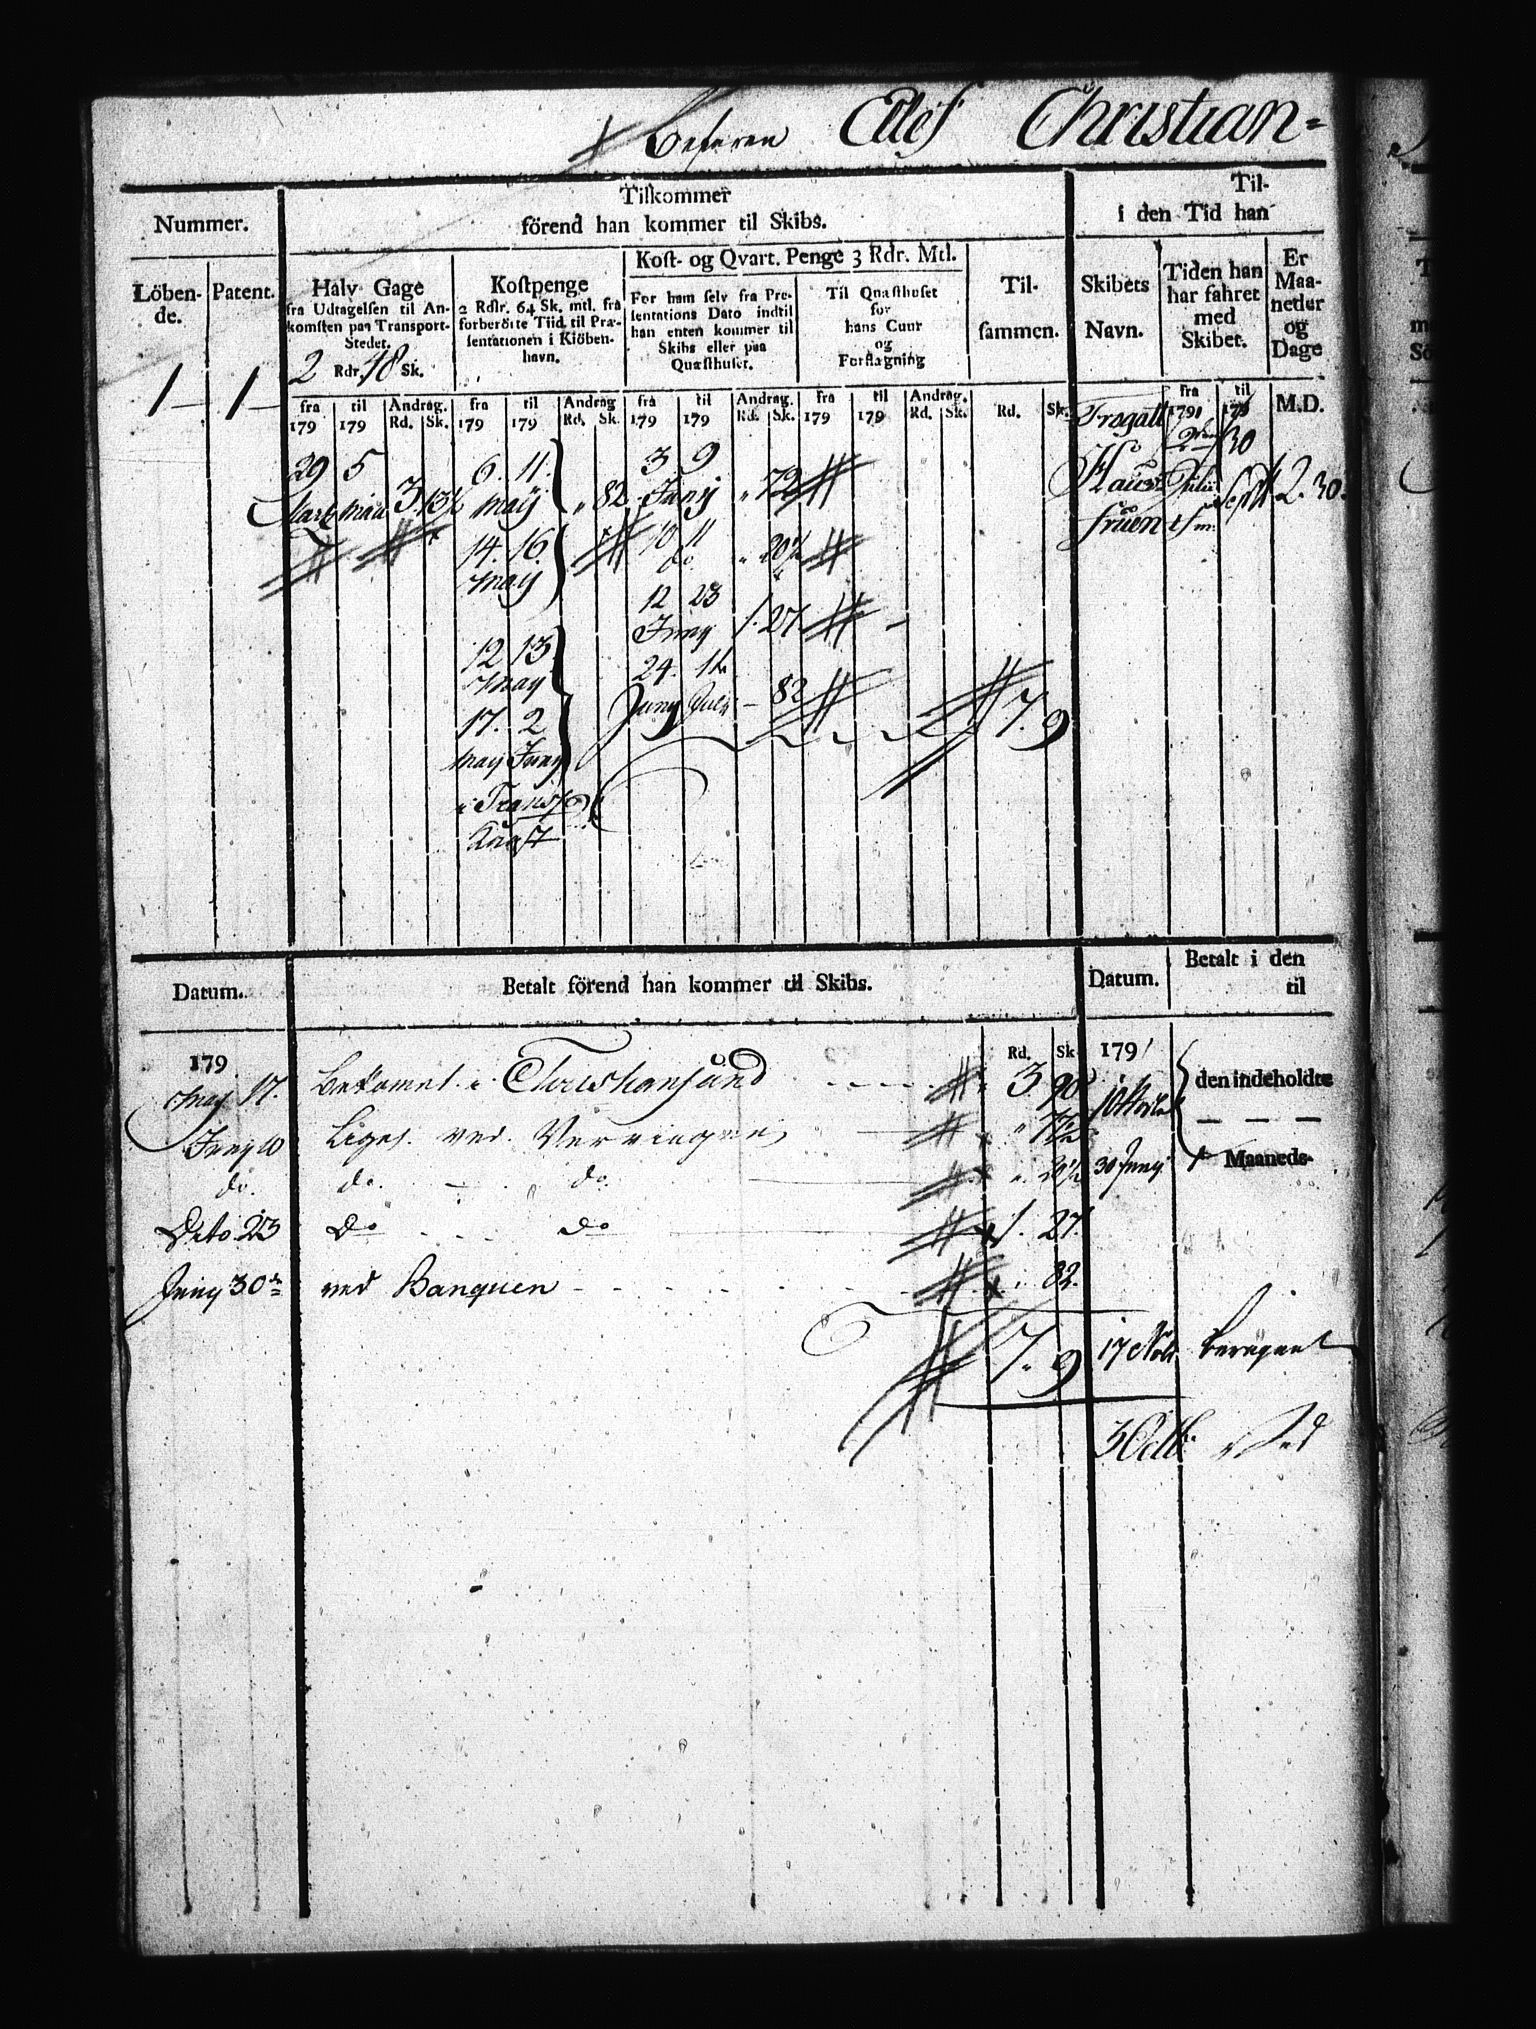 Befaren Elles Christian=
Nummer.
Tilkommer
förend han kommer til Skibs.
Til-
i den Tid han
Löben-
de.
Patent.
Halv Gage
fra Udtagelsen til An-
komsten paa Transport-
Stedet.
2 Rdr. 48 Sk.
Kostpenge
2 Rdlr. 64 Sk. mtl. fra
forberörte Tiid til Præ-
sentationen i Kiöben-
havn.
Kost- og Qvart. Penge 3 Rdr. Mtl.
For ham selv fra Pre-
sentations Dato indtil
han enten kommer til
Skibs eller paa
Quæsthuset.
Til Quæsthuset
for
hans Cuur
og
Forflagning
Til-
sammen.
Skibets
Navn.
Tiden han
har fahret
med
Skibet.
Er
Maa-
neder
og
Dage
1 1
fra 179 til 179 Andrag. Rd. Sk.
fra 179 til 179 Andrag Rd. Sk.
fra 179 til 179 Andrag. Rd. Sk.
fra 179 til 179 Andrag. Rd. Sk.
Rd. Sk.
fra 1791 til 179
M.D.
29 5 6. 11. 3 9 Fregatt 30
Maii 3. 13½ Maij " 82. Junij " 72 Hau 2. 30.
14. 16 10 11 fruen
Maij do " 20½
12 23
Juny 1. 27.
12 13 24. 11
May Juny Julii - 82
17. 2 7. 9
May Juny
Datum.
Betalt förend han kommer til Skibs.
Datum.
Betalt i den
til
179 Rd. Sk. 1791
May 17. Bekomet i Christiansand 3 90 den indeholdte
Juny 10 Liges. ved Verringen
do. do. do. 20½ 30 Junij Maaneds-
Dito 23 Do do 1. 27.
Juny 30 ved Banquen 82.
7. 9 17 beregnet